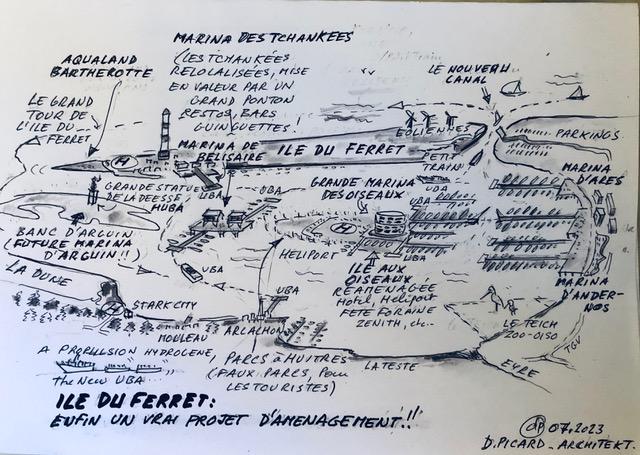 MARINA DES TCHANKÉES
(LES TCHANKÉES
RELOCALISÉES, MISE
EN VALEUR PAR UN
GRAND PONTON
RESTOS, BARS
GUINGUETTES!
AQUALAND
BARTHEROTTE
LE NOUVEAU
CANAL
LE GRAND
TOUR DE
L'ILE DU
FERRET
EOLIENNES
PARKINGS
MARINA DE
BÉLISAIRE
ILE DU FERRET
PETIT
TRAIN
MARINA
D'ARES
H
GRANDE STATUE
DE LA DÉESSE
HUBA
UBA
UBA
GRANDE MARINA
DES OISEAUX
UBA
BANC D'ARGUIN
(FUTURE MARINA
D'ARGUIN!!)
H
HELIPORT
UBA
UBA
ILE AUX
OISEAUX
RÉAMENAGÉE
Hotel, Héliport
FÊTE FORAINE
ZENITH, etc..
MARINA
D'ANDER-
NOS
LA DUNE
UBA
H
STARK CITY
MOULEAU
ARCACHON
LE TEICH
ZOO-OISO
TGV
A PROPULSION HYDROGÈNE
The New UBA...
PARCS à HUÎTRES
(FAUX PARCS, POUR
LES TOURISTES)
LA TESTE
EYRE
ILE DU FERRET:
ENFIN UN VRAI PROJET D'AMENAGEMENT!!
07.2023
D. PICARD - ARCHITEKT.